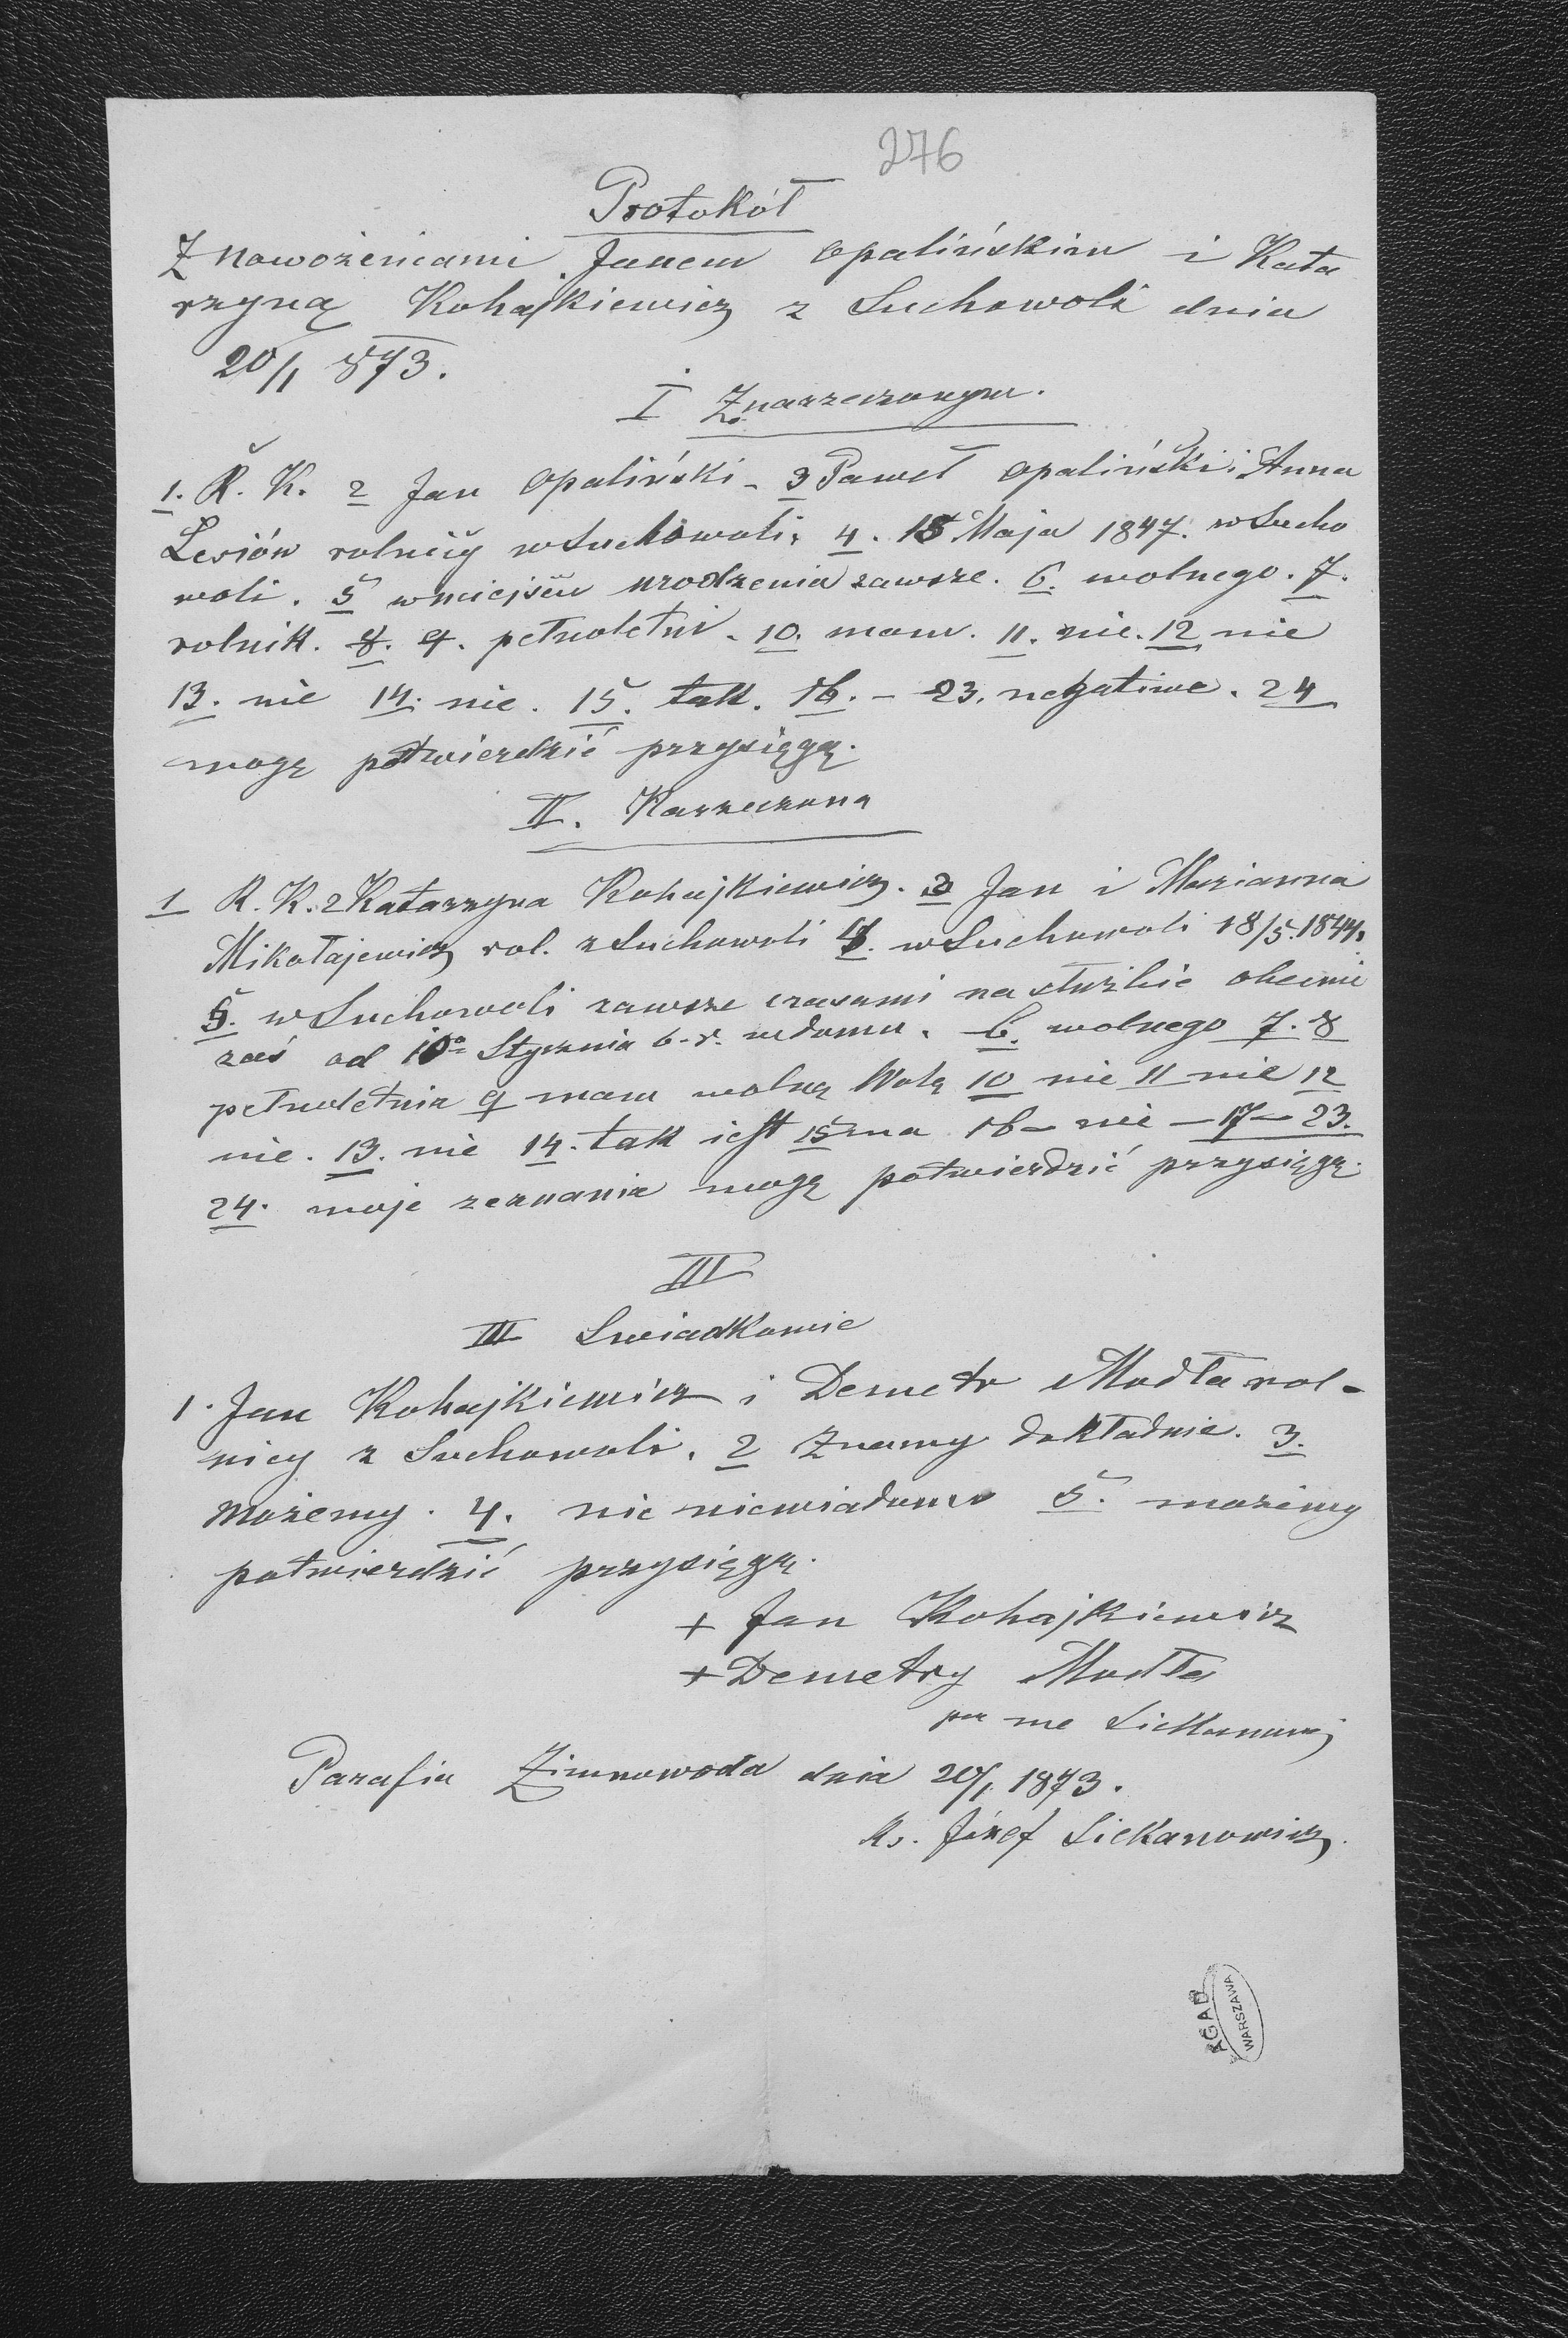 276
Protokół
Z nowożeńcami Janem Opalińskim i Kata
rzyną Kohajkiewicz z Suchowoli dnia
20/1 873.
I Z narzeczonym.
1. R. K. 2 Jan Opaliński - 3 Paweł Opaliński i Anna
Lesiów rolnicy w Suchowoli. 4. 15 Maja 1847. w Sucho
woli. 5 w miejscu urodzenia zawsze. 6. wolnego. 7.
rolnik. 8. 9. pełnoletni. 10. mam. 11. nie. 12 nie
13. nie 14. nie. 15. tak. 16. - 23. negatiwe. 24
mogę potwierdzić przysięgą.
II. Narzeczona
1 R. K. 2 Katarzyna Kohajkiewicz. 3 Jan i Marianna
Mikołajewicz rol. z Suchowoli 4. w Suchowoli 18/5. 1844.
5. w Suchowoli zawsze czasami na służbie obecnie
zaś od 10º Stycznia b. r. w domu. 6. wolnego 7. 8
pełnoletnia 9 mam wolną Wolę 10 nie 11 nie 12
nie. 13. nie 14. tak jest 15 zna 16 - nie - 17 - 23.
24. moje zeznania mogę potwierdzić przysięgą.
III
III Swiadkowie
1. Jan Kohajkiewicz i Demetr Modła rol-
nicy z Suchowoli. 2 Znamy dokładnie. 3.
możemy. 4. nic niewiadomo 5. możemy
potwierdzić przysięgą.
+ Jan Kohajkiewicz
+ Demetry Modła
per me Siekanowicz
Parafia Zimnowoda dnia 20/1 1873.
Ks. Józef Siekanowicz.
AGAD
WARSZAWA